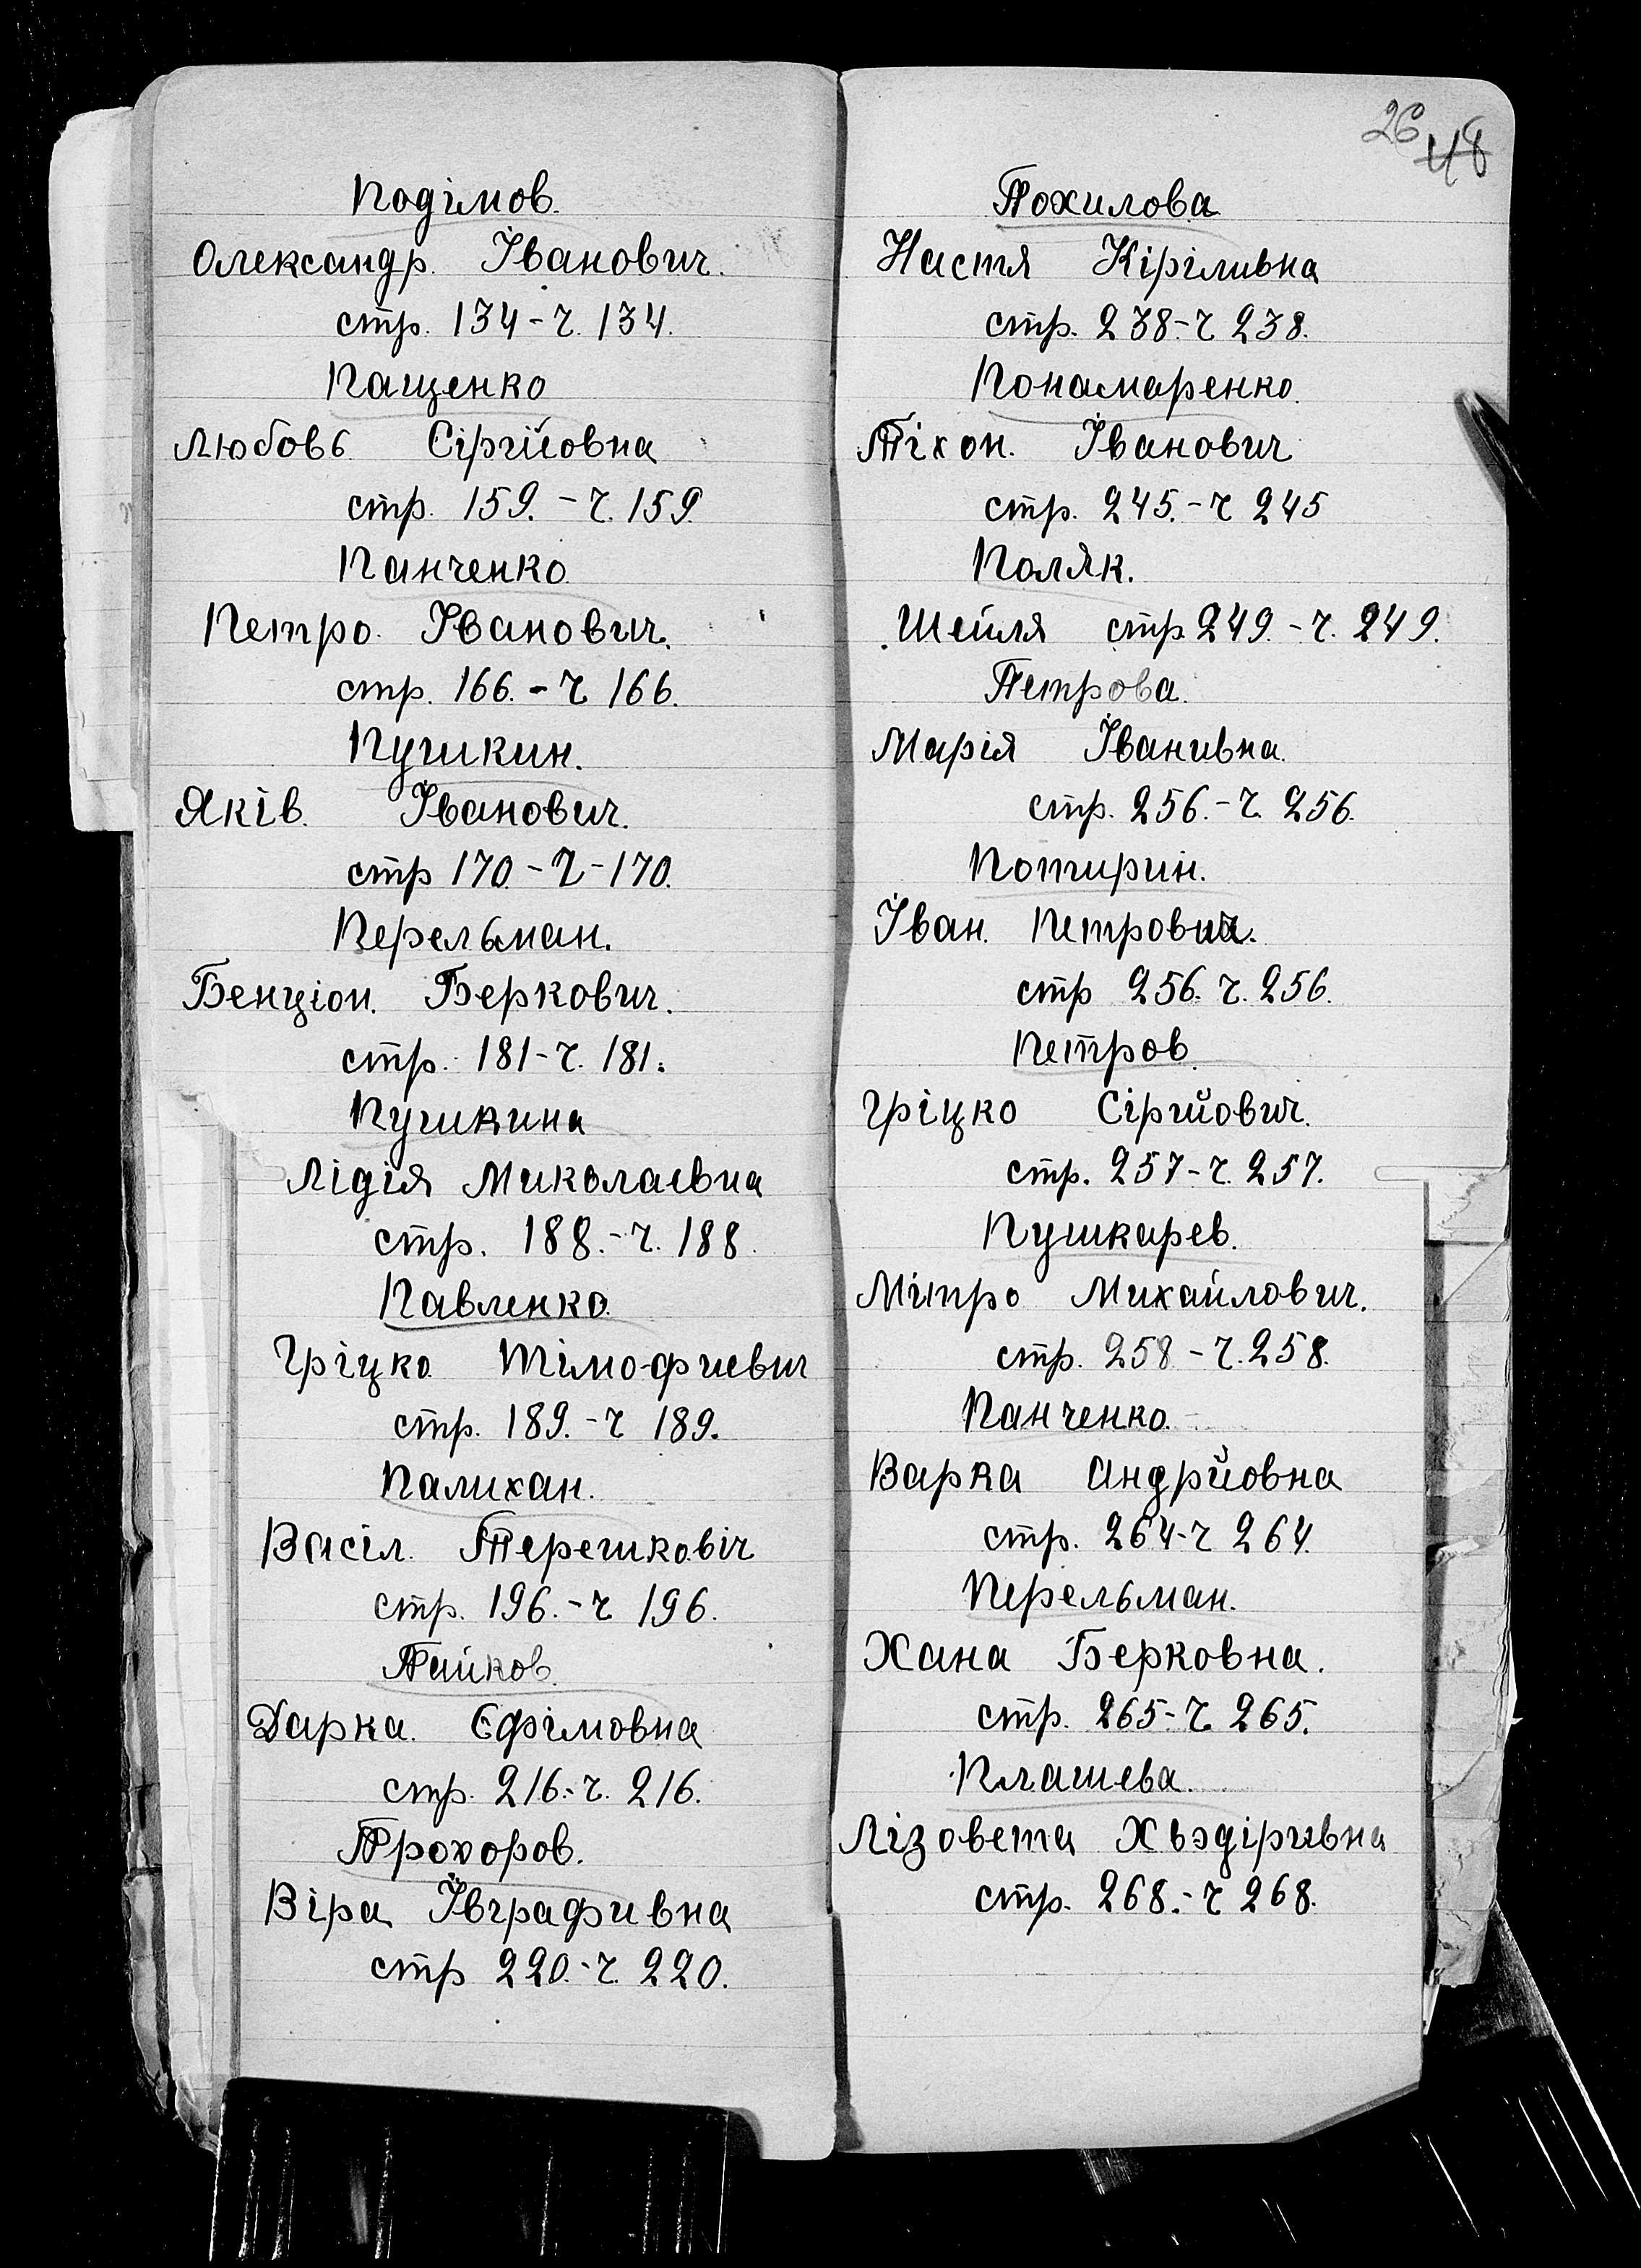 Подімов.
Олександр. Іванович.
стр. 134 - ч. 134.
Пащенко
Любовь Сіргійовна
стр. 159. - ч. 159.
Панченко
Петро. Іванович.
стр. 166. - ч 166.
Пушкин.
Яків. Іванович.
стр 170 - ч - 170.
Перельман.
Бенціон. Беркович.
стр. 181 - ч. 181.
Пушкина
Лідія Миколаевна
стр. 188. - ч. 188.
Павленко.
Гріцко Тімофиевич
стр. 189. - ч 189.
Палихан.
Васіл. Терешковіч
стр. 196. - ч 196.
Пайков.
Дарка. Єфімовна
стр. 216. - ч. 216.
Прохоров.
Віра Івграфивна
стр 220. - ч. 220.
26 48
Похилова
Настя Кіріливна
стр. 238. - ч 238.
Понамаренко.
Тіхон. Іванович
стр. 245. - ч 245
Поляк.
Шейля стр 249. - ч. 249.
Петрова.
Марія Іванивна.
стр. 256. - ч. 256.
Потирин.
Іван. Петрович.
стр 256. ч. 256.
Петров.
Гріцко Сіргійович.
стр. 257 - ч. 257.
Пушкарев.
Мітро Михайлович.
стр. 258 - ч. 258.
Панченко.
Варка Андрійовна
стр. 264 - ч 264.
Перельман.
Хана Берковна.
стр. 265 - ч 265.
Плашева.
Лізовета Хьэдіривна
стр. 268. - ч 268.